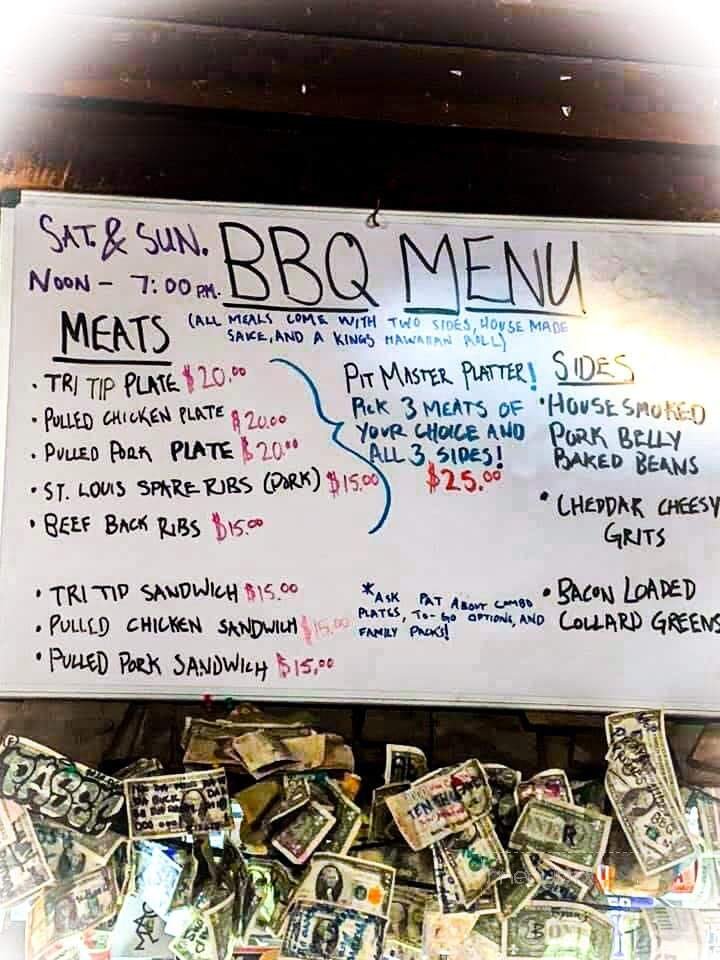 SAT. & SUN.
NOON - 7:00 PM.
BBQ MENU
(ALL MEALS COME WITH TWO SIDES, HOUSE MADE
SAUCE, AND A KINGS HAWAIIAN ROLL)
MEATS
• TRI TIP PLATE $20.00
• PULLED CHICKEN PLATE $20.00
• PULLED PORK PLATE $20.00
• ST. LOUIS SPARE RIBS (PORK) $15.00
• BEEF BACK RIBS $15.00
• TRI TIP SANDWICH $15.00
• PULLED CHICKEN SANDWICH $15.00
• PULLED PORK SANDWICH $15.00
PIT MASTER PLATTER!
PICK 3 MEATS OF
YOUR CHOICE AND
ALL 3 SIDES!
$25.00
*ASK PAT ABOUT COMBO
PLATES, TO-GO OPTIONS, AND
FAMILY PACKS!
SIDES
• HOUSE SMOKED
PORK BELLY
BAKED BEANS
• CHEDDAR CHEESY
GRITS
• BACON LOADED
COLLARD GREENS